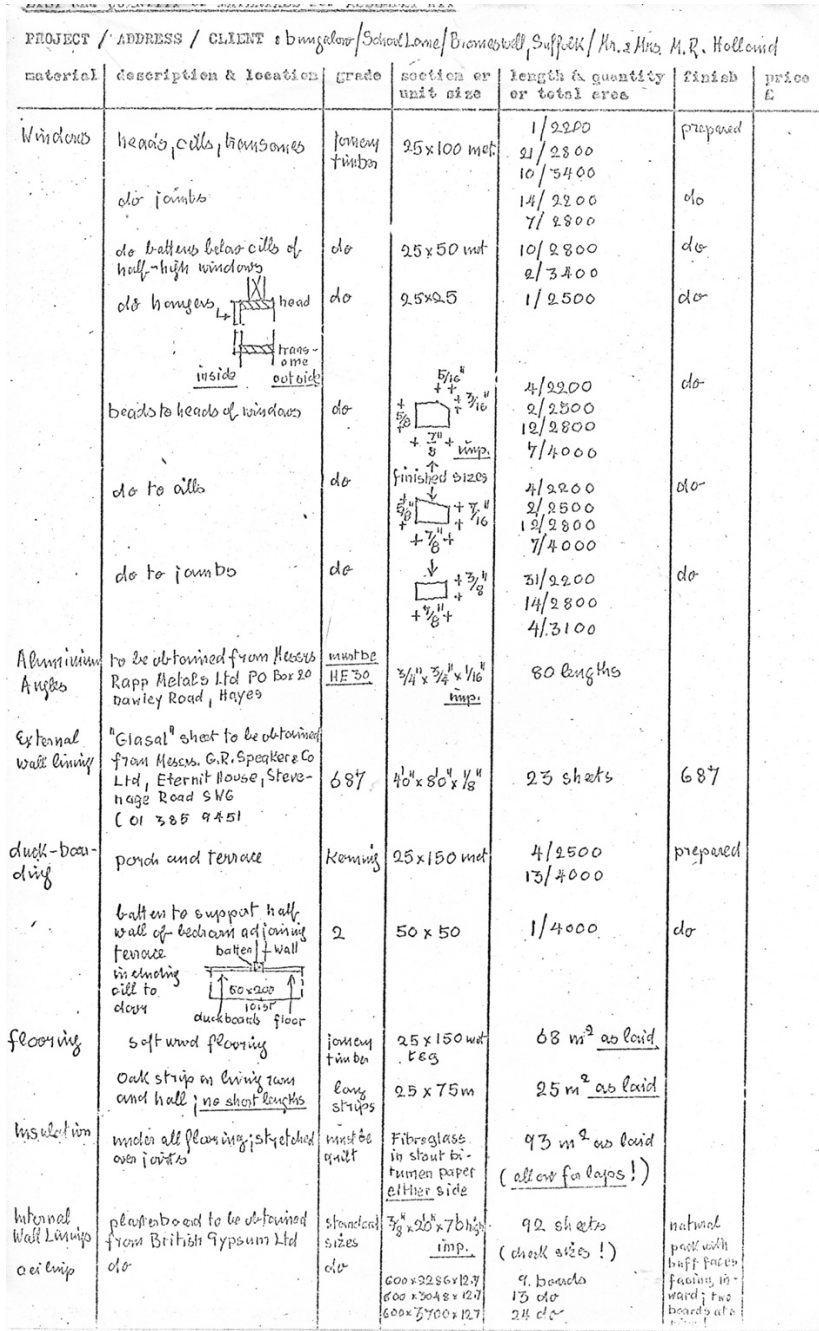 LIST AND QUANTITY OF MATERIALS FOR ASSEMBLY KIT
PROJECT / ADDRESS / CLIENT : bungalow/School Lane/Bromeswell, Suffolk/Mr. & Mrs. M.R. Holland
material | description & location | grade | section or unit size | length & quantity or total area | finish | price £
Windows heads, cills, transomes joinery timber 25x100 met. 1/2200 prepared
21/2800
10/3400
do jambs 14/2200 do
7/2800
do battens below cills of half-high windows do 25x50 met 10/2800 do
2/3400
do hangers do 25x25 1/2500 do
head
transome
inside outside
beads to heads of windows do 5/16" 3/16" 5/8 7/8" imp. 4/2200 do
2/2500
12/2800
7/4000
finished sizes
do to cills do 5/8" 7/16" 7/8" 4/2200 do
2/2500
12/2800
7/4000
do to jambs do 3/8" 7/8" 31/2200 do
14/2800
4/3100
Aluminium Angles to be obtained from Messrs Rapp Metals Ltd PO Box 20 Dawley Road, Hayes must be HE30 3/4" x 3/4" x 1/16" imp. 80 lengths
External wall lining "Glasal" sheet to be obtained from Messrs. G.R. Speaker & Co Ltd, Eternit House, Stevenage Road SW6 687 4'0" x 8'0" x 1/8" 23 sheets 687
( 01 385 9451
duck-boarding porch and terrace 25x150 met 4/2500 prepared
13/4000
batten to support half wall of bedroom adjoining terrace including cill to door 2 50 x 50 1/4000 do
batten wall
50x200
joist
duckboards floor
flooring softwood flooring joinery timber 25x150 met t&g 68 m² as laid
Oak strip in living room and hall; no short lengths long strips 25 x 75 m 25 m² as laid
Insulation under all flooring; stretched over joists must be quilt Fibreglass in stout bitumen paper either side 93 m² as laid
(allow for laps!)
Internal Wall Linings plasterboard to be obtained from British Gypsum Ltd standard sizes 3/8" x 2'0" x 7'6 high imp. 92 sheets
(check sizes!)
natural
pack with
buff faces
facing in-
ward; two
boards at a
ceiling do do
600x2286x12.7 9. boards
600x3048x12.7 13 do
600x3700x12.7 24 do